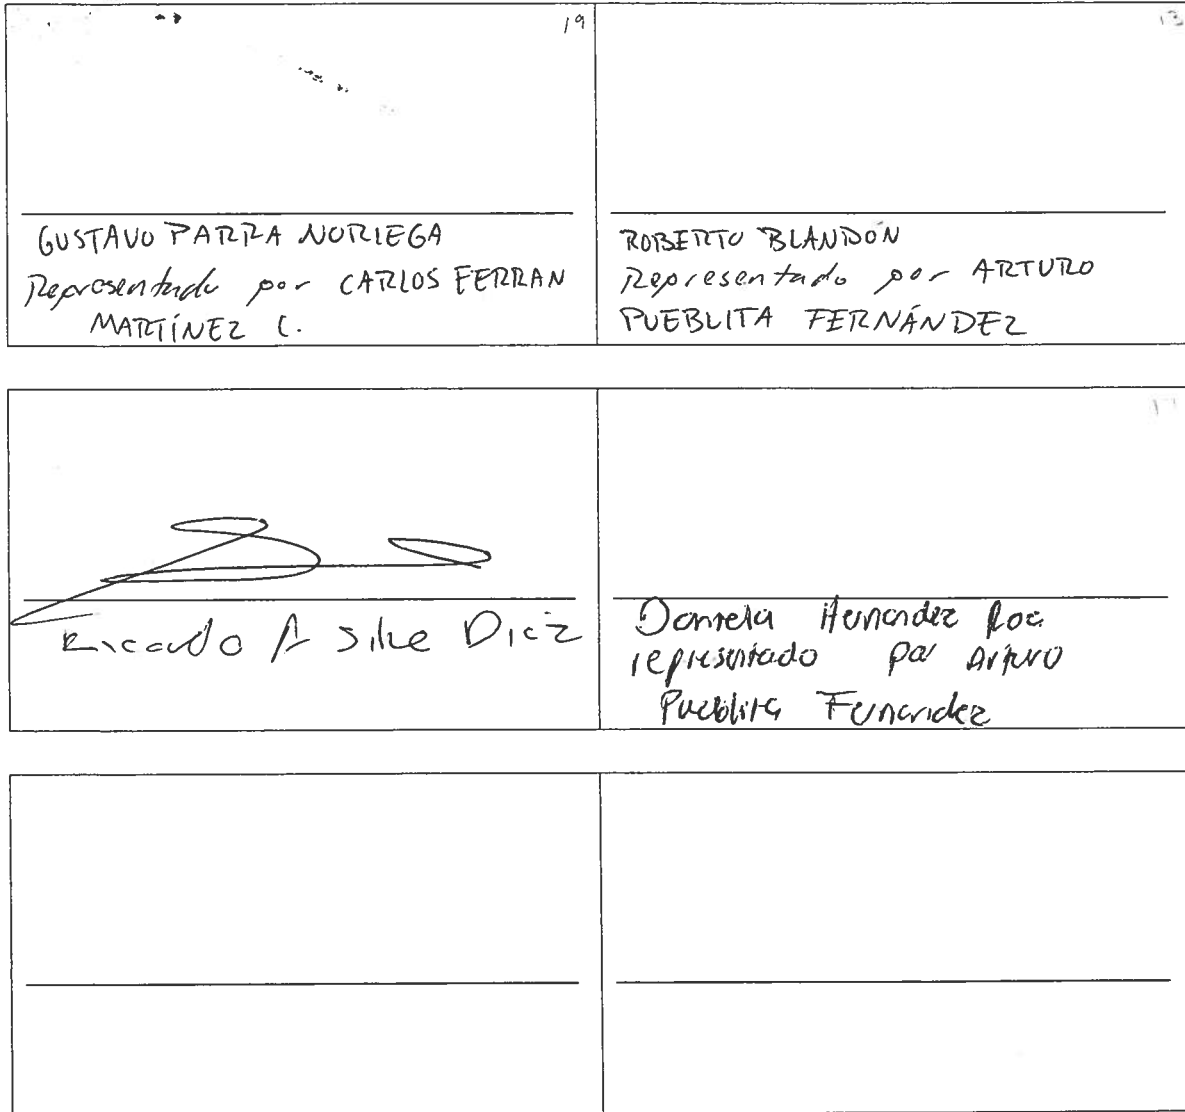 19
13
GUSTAVO PARRA NORIEGA
Representado por CARLOS FERRAN
MARTÍNEZ C.
ROBERTO BLANDÓN
Representado por ARTURO
PUEBLITA FERNÁNDEZ
Ricardo A Silve Diez
Daniela Hernandez Roa
representado por Arturo
Pueblita Fernandez